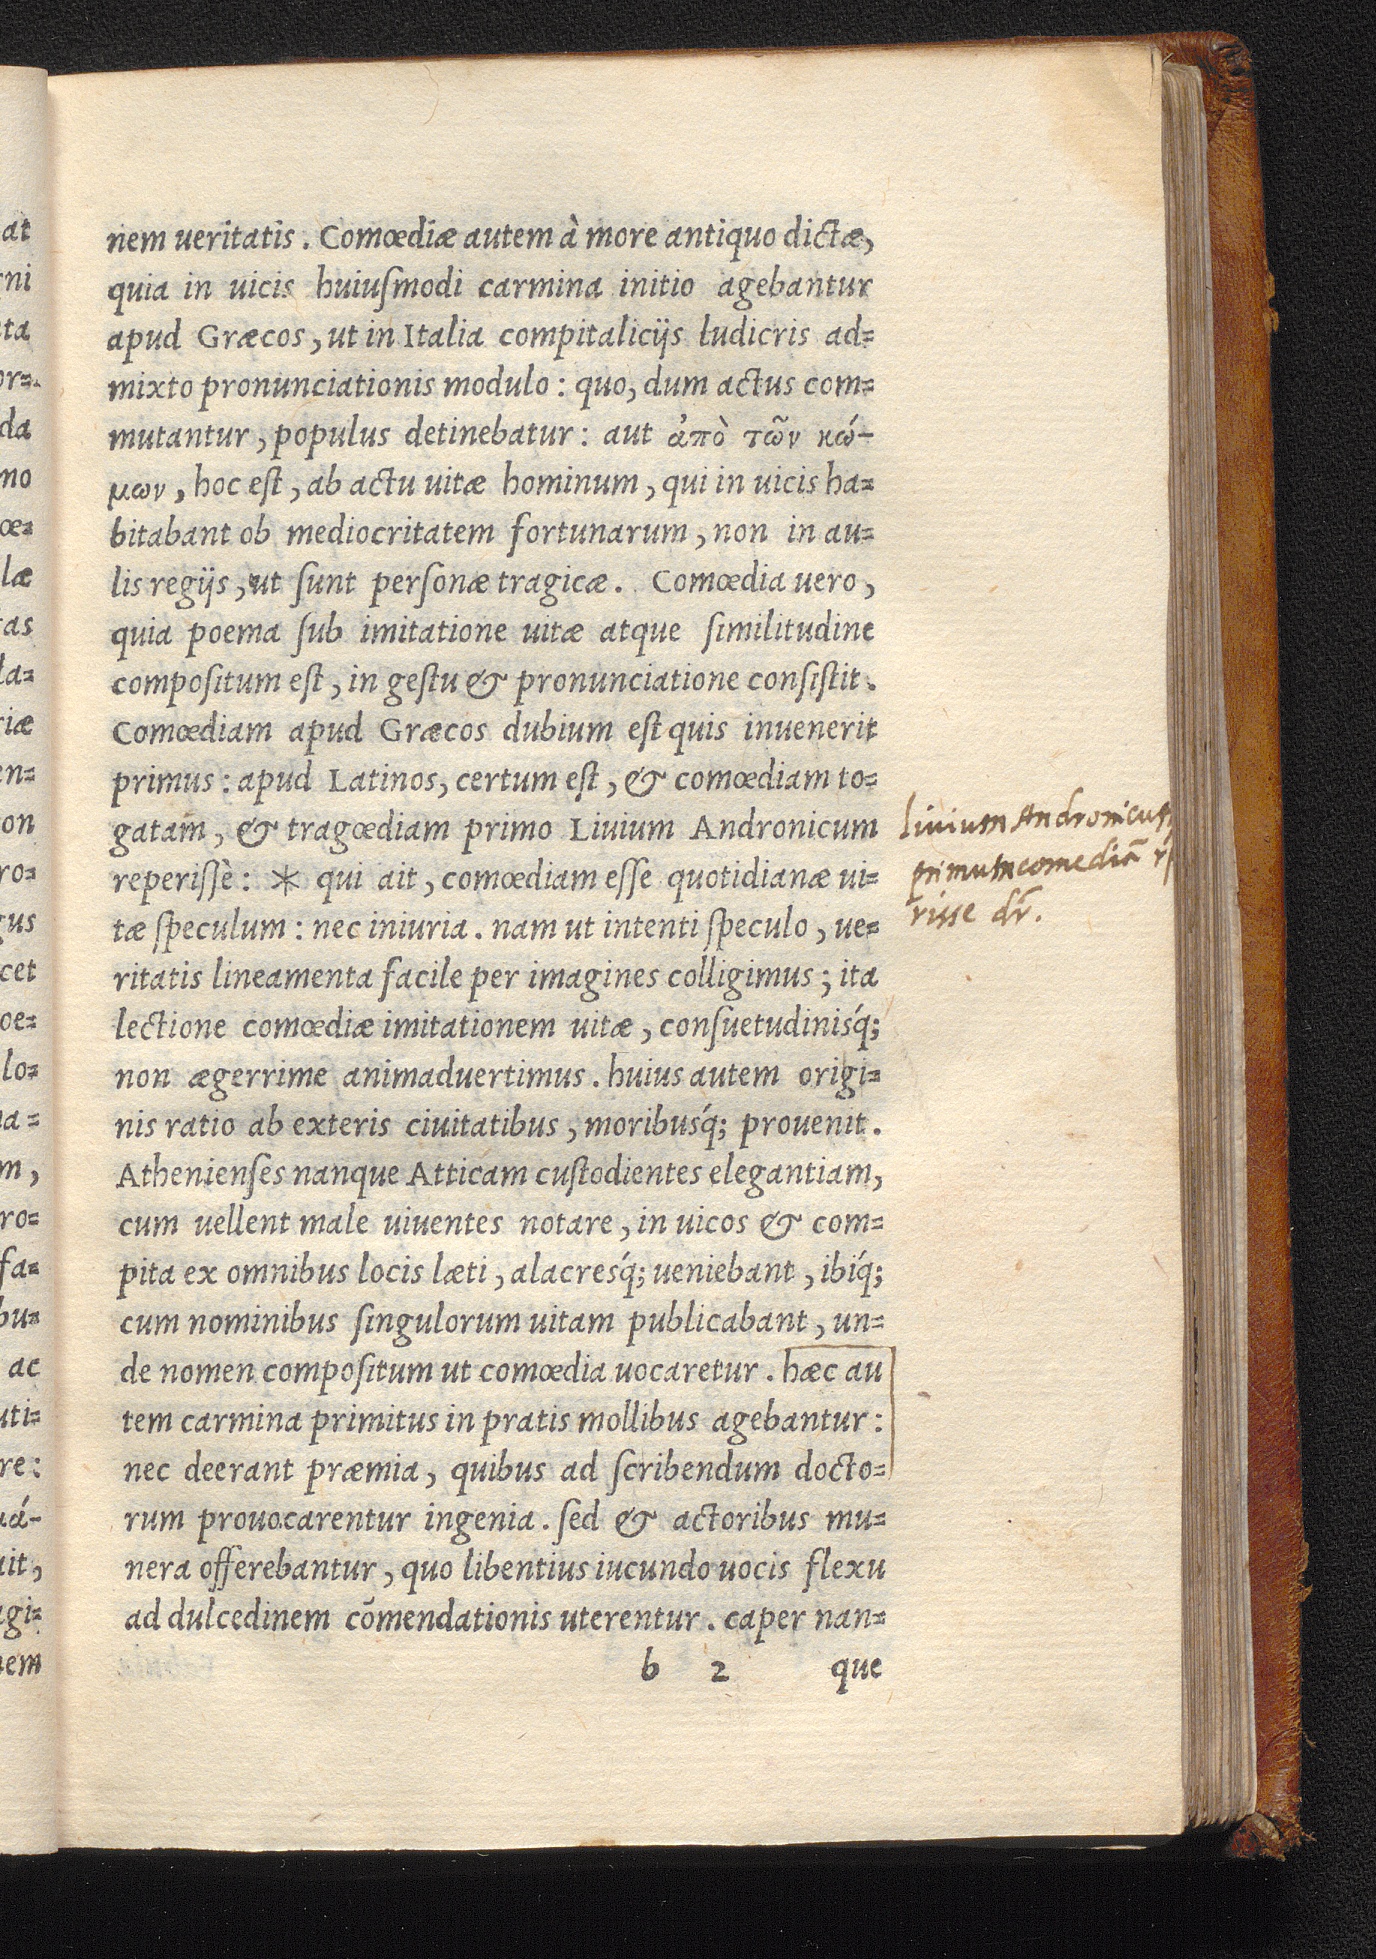 nem ueritatis. Comœdiæ autem à more antiquo dictæ,
quia in uicis huiuſmodi carmina initio agebantur
apud Græcos, ut in Italia compitalicijs ludicris ad=
mixto pronunciationis modulo: quo, dum actus com=
mutantur, populus detinebatur: aut ἀπὸ τῶν κώ-
μων, hoc eſt, ab actu uitæ hominum, qui in uicis ha=
bitabant ob mediocritatem fortunarum, non in au=
lis regijs, ut ſunt perſonæ tragicæ. Comœdia uero,
quia poema ſub imitatione uitæ atque ſimilitudine
compoſitum eſt, in geſtu & pronunciatione conſiſtit.
Comœdiam apud Græcos dubium eſt quis inuenerit
primus: apud Latinos, certum eſt, & comœdiam to=
gatam, & tragœdiam primo Liuium Andronicum
reperiſſè: * qui ait, comœdiam eſſe quotidianæ ui=
tæ ſpeculum: nec iniuria. nam ut intenti ſpeculo, ue=
ritatis lineamenta facile per imagines colligimus; ita
lectione comœdiæ imitationem uitæ, conſuetudinisq́;
non ægerrime animaduertimus. huius autem origi=
nis ratio ab exteris ciuitatibus, moribusq́; prouenit.
Athenienſes nanque Atticam cuſtodientes elegantiam,
cum uellent male uiuentes notare, in uicos & com=
pita ex omnibus locis læti, alacresq́; ueniebant, ibiq́;
cum nominibus ſingulorum uitam publicabant, un=
de nomen compoſitum ut comœdia uocaretur. hæc au
tem carmina primitus in pratis mollibus agebantur:
nec deerant præmia, quibus ad ſcribendum docto=
rum prouocarentur ingenia. ſed & actoribus mu=
nera offerebantur, quo libentius iucundo uocis flexu
ad dulcedinem cōmendationis uterentur. caper nan=
b 2 que
liuium Andronicum
primum comediā
risse dr̄.
at
ni
ta
or=
da
no
œ=
læ
tas
la=
riæ
en=
on
ro=
gus
cet
oe=
lo=
na=
m,
ro=
fa=
bu=
ac
uti=
re:
uit,
agi=
nem